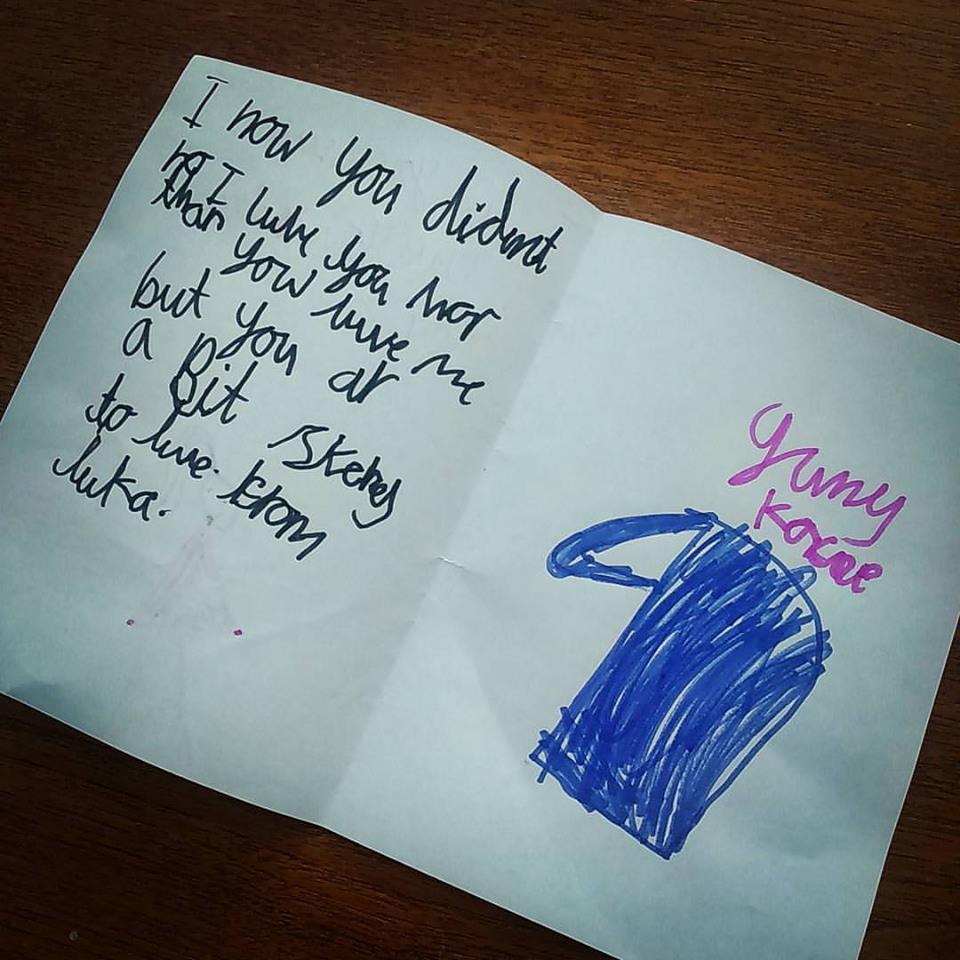 I now you didnat
no I luve you mor
than you luve me
but you ar
a Bit skerey
to luve. from
luka.
yumy
Korcee